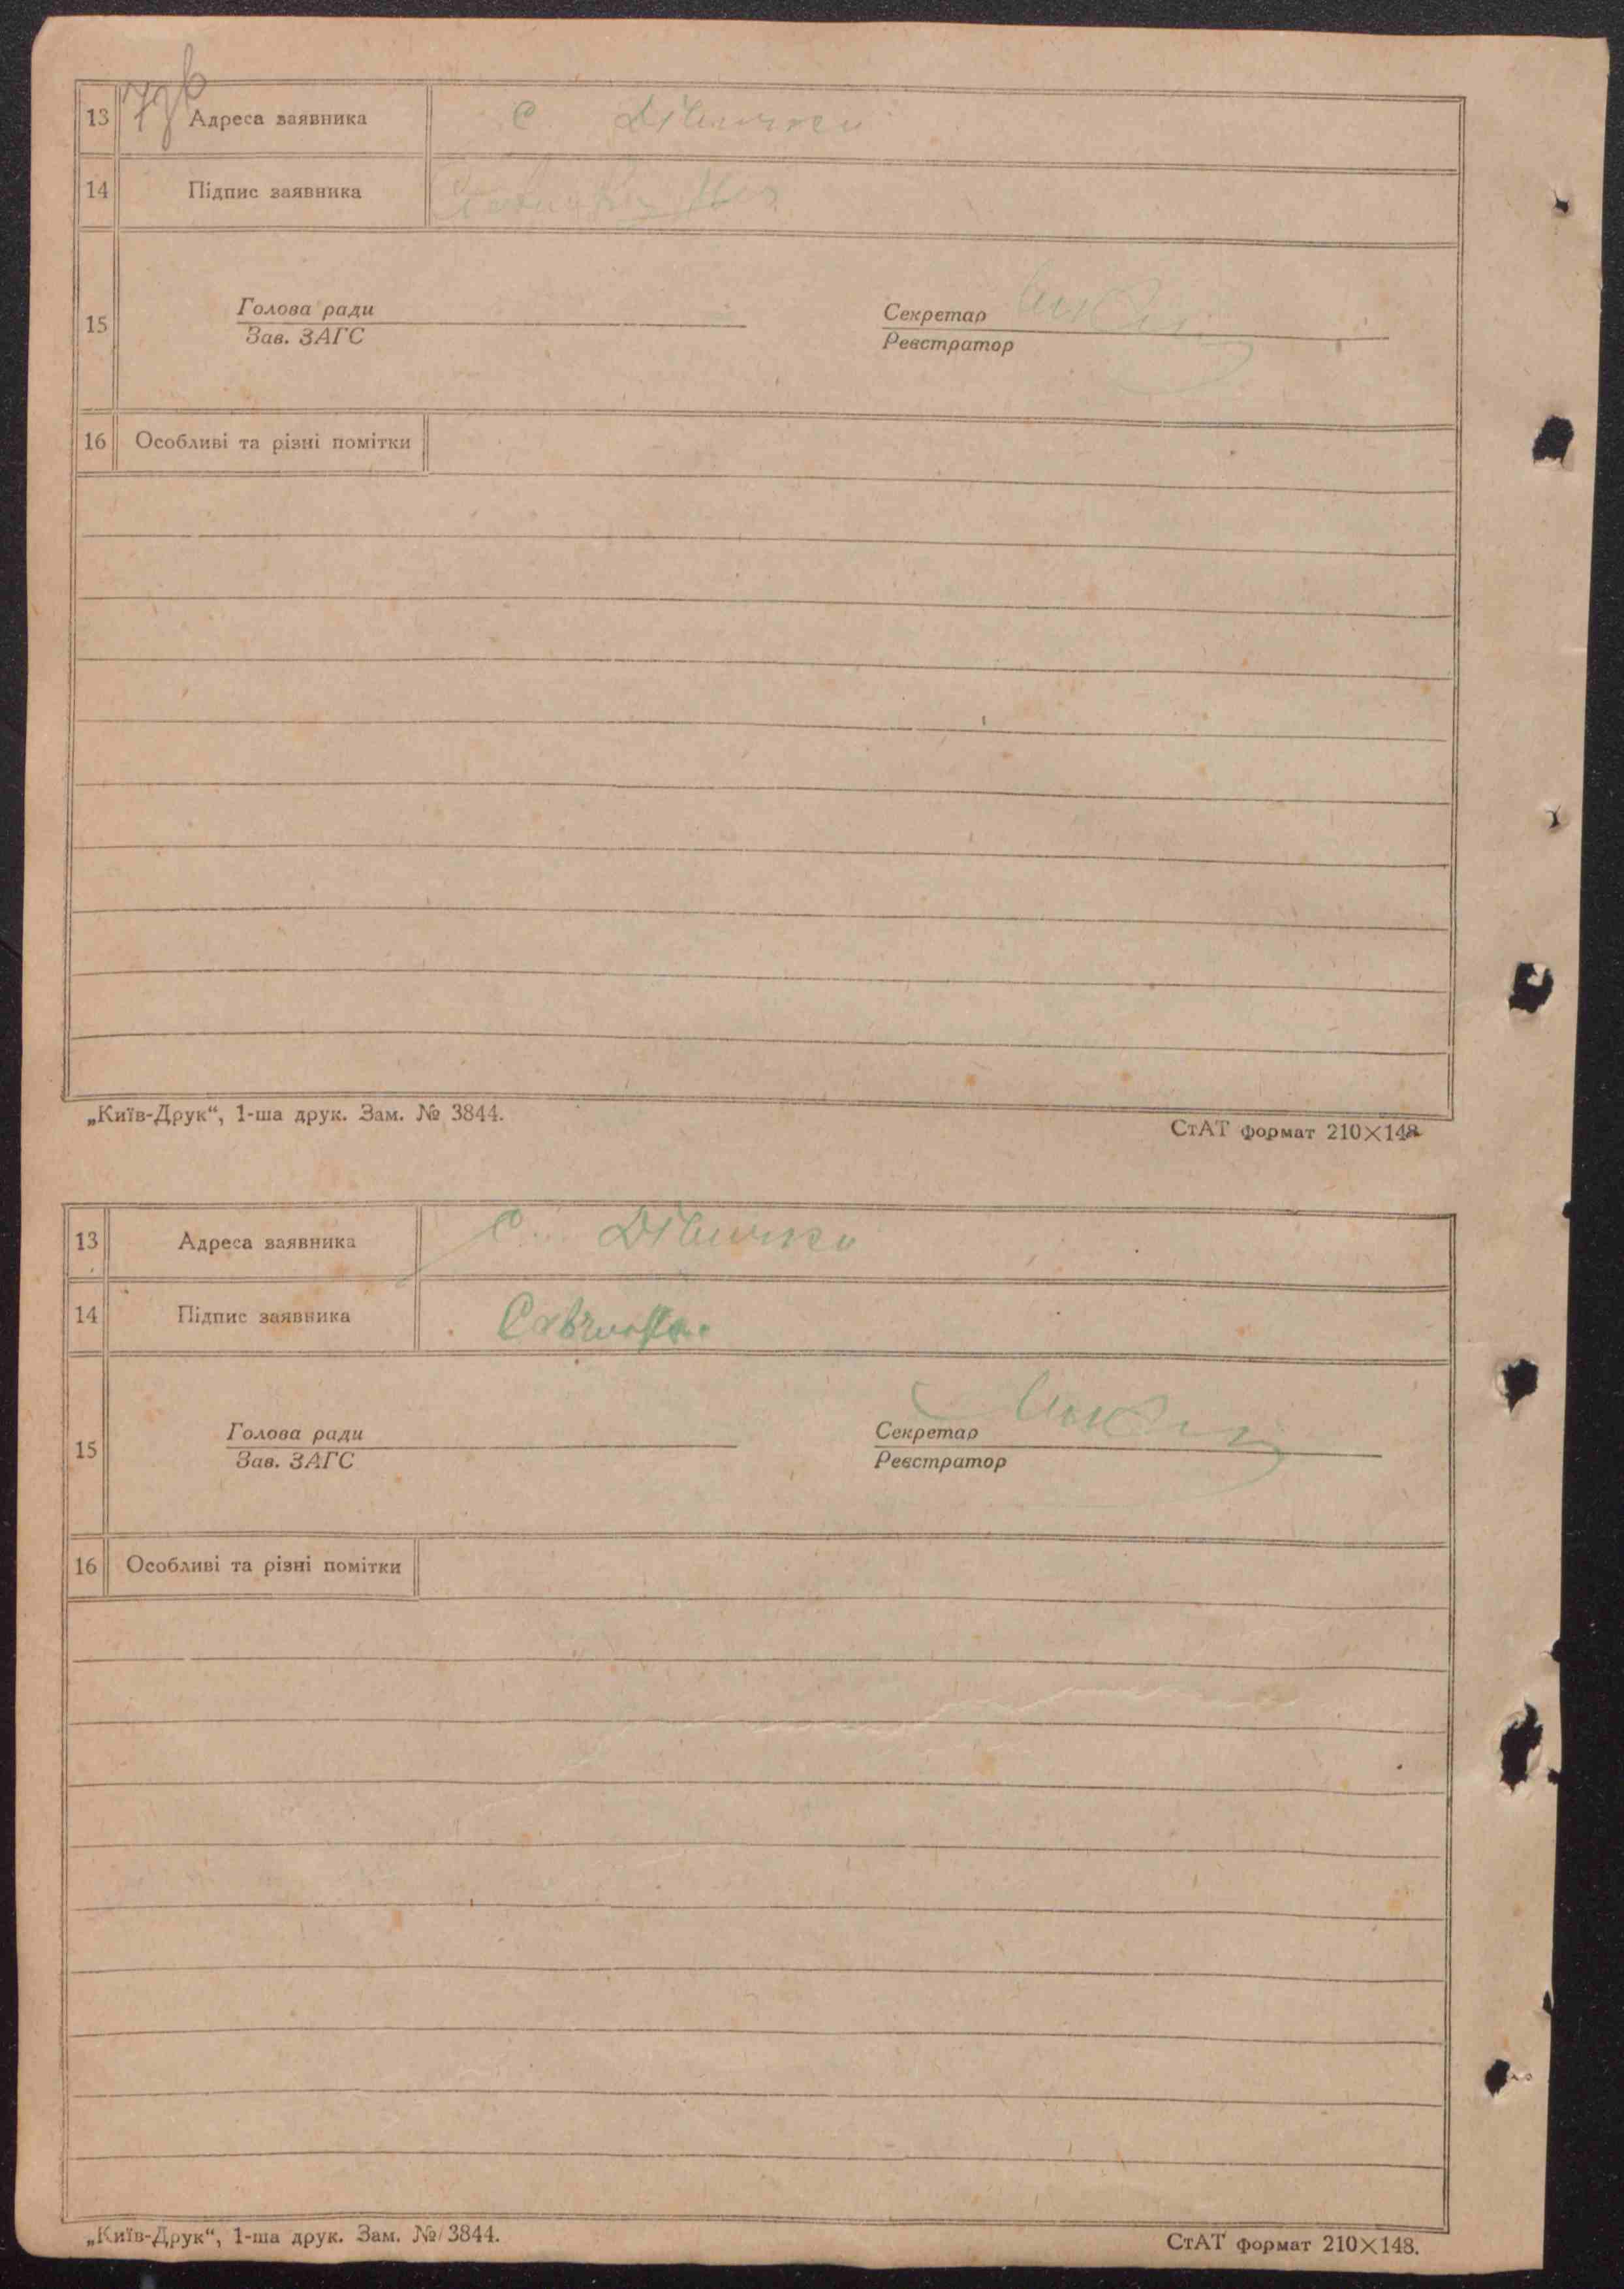 13 Адреса заявника с. Дівички
14 Підпис заявника
Голова ради Секретар
15
Зав. ЗАГС Реєстратор
16 Особливі та різні помітки
„Київ-Друк“, 1-ша друк. Зам. № 3844.
СтАТ формат 210×148
13 Адреса заявника с. Дівички
14 Підпис заявника
Голова ради Секретар
15
Зав. ЗАГС Реєстратор
16 Особливі та різні помітки
„Київ-Друк“, 1-ша друк. Зам. № 3844.
СтАТ формат 210×148.